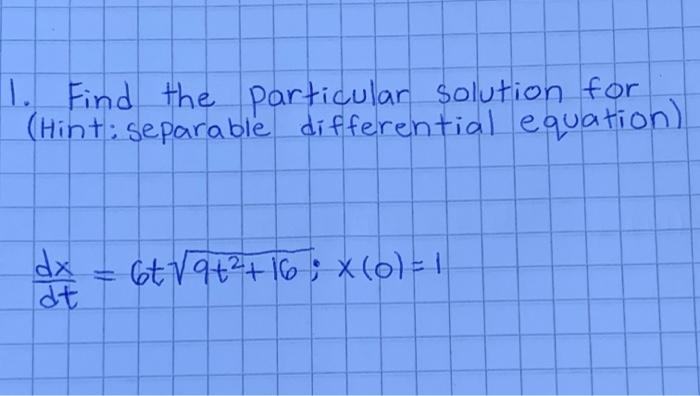 1. Find the particular solution for
(Hint: separable differential equation)
dx/dt = 6t√(9t²+16); x(0)=1